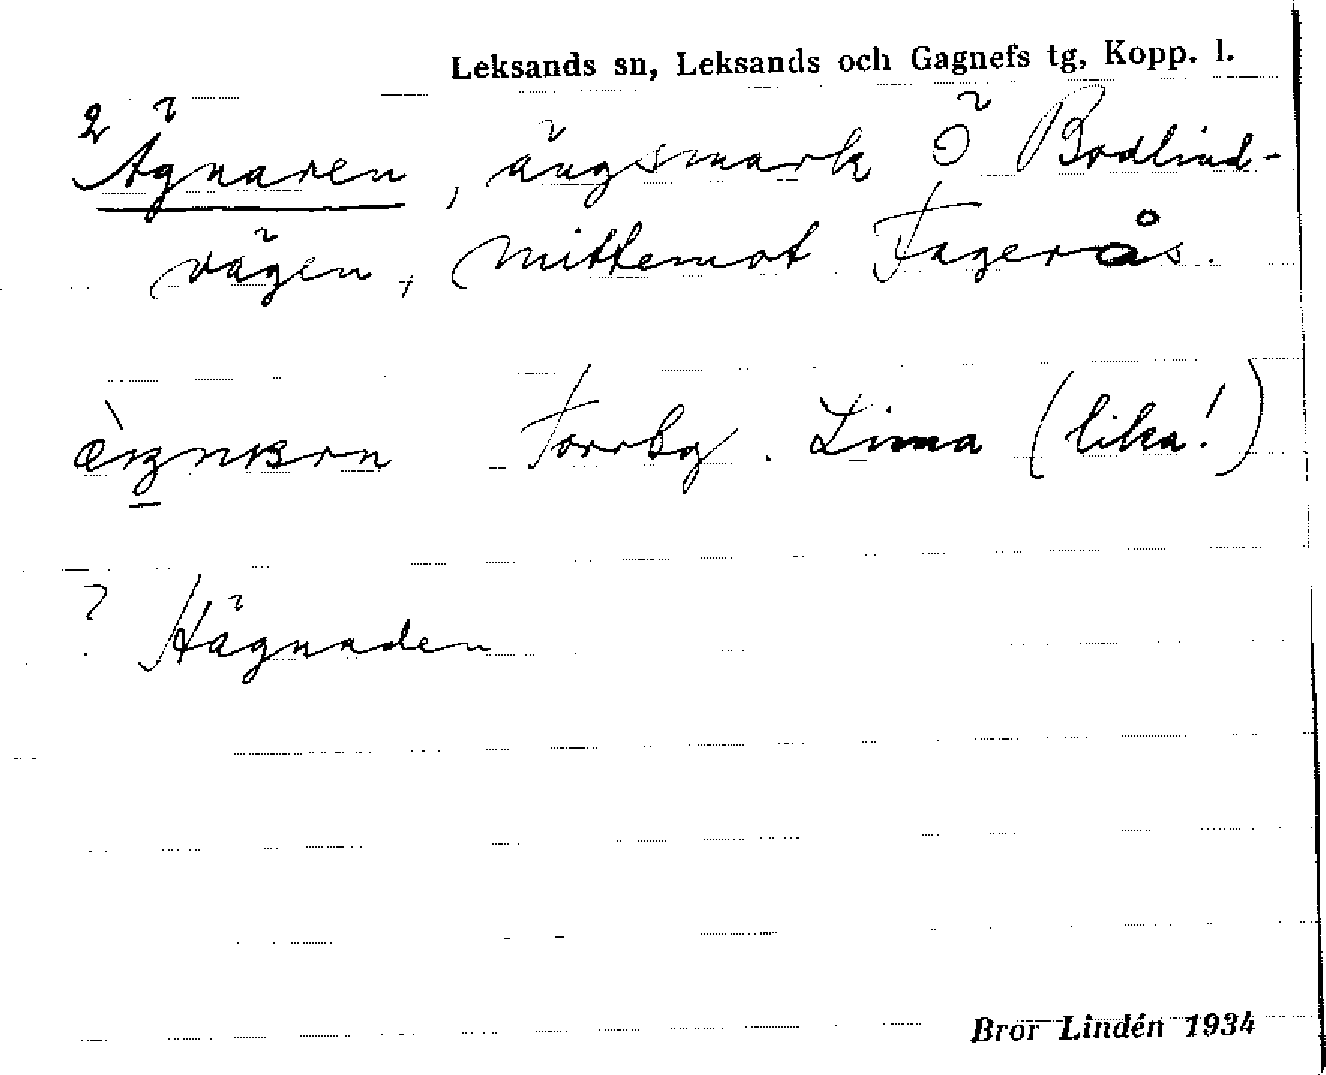 Leksands sn, Leksands och Gagnefs tg, Kopp. l.
2 Ägnaren, ängsmark Ö Bodlind-
vägen, mittemot Fagerås.
Torrbg. Lima (lika!)
? Hägnaden
Bror Lindén 1934